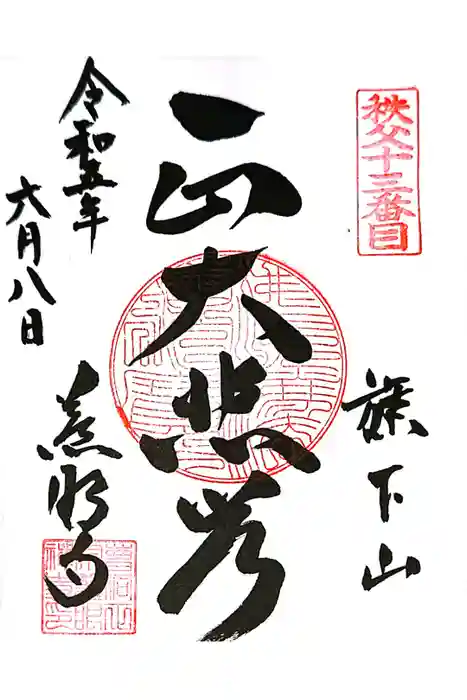 秩父十三番目
旗下山
正大悲
慈眼寺
令和五年
六月八日